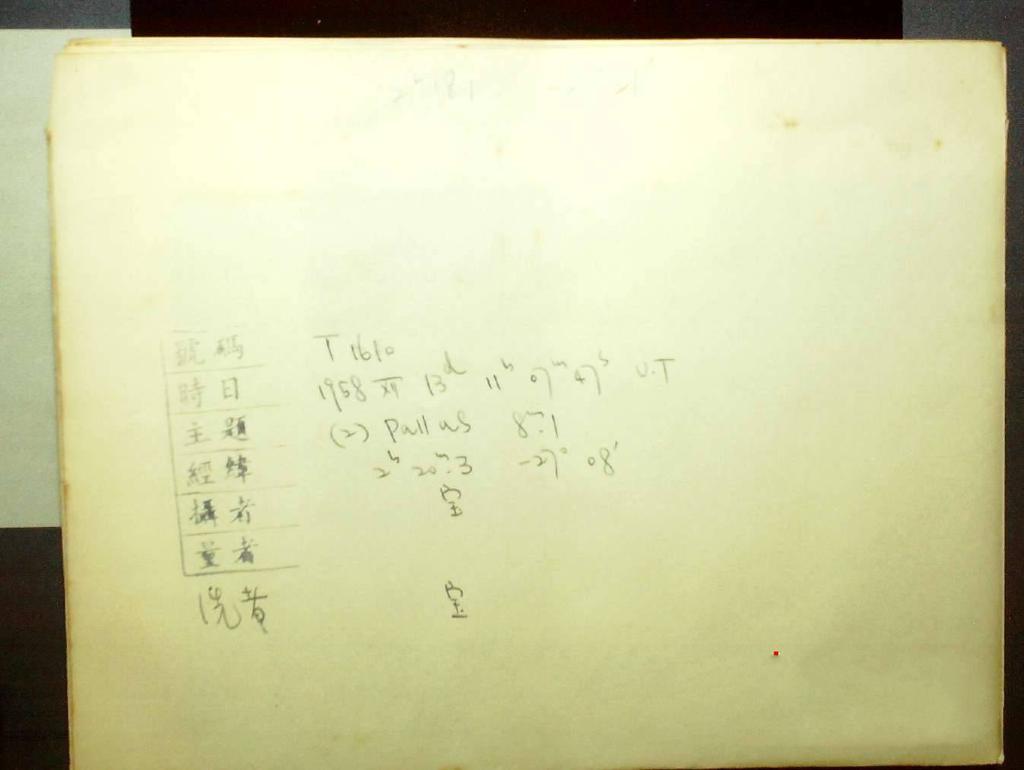 號碼 T 1610
時日 1958 XII 13ᵈ 11ʰ 07ᵐ 47ˢ U.T
主題 (2) Pallas 8ᵐ.1
經緯 2ʰ 20ᵐ.3 -27° 08'
攝者 宝
量者
洗者 宝